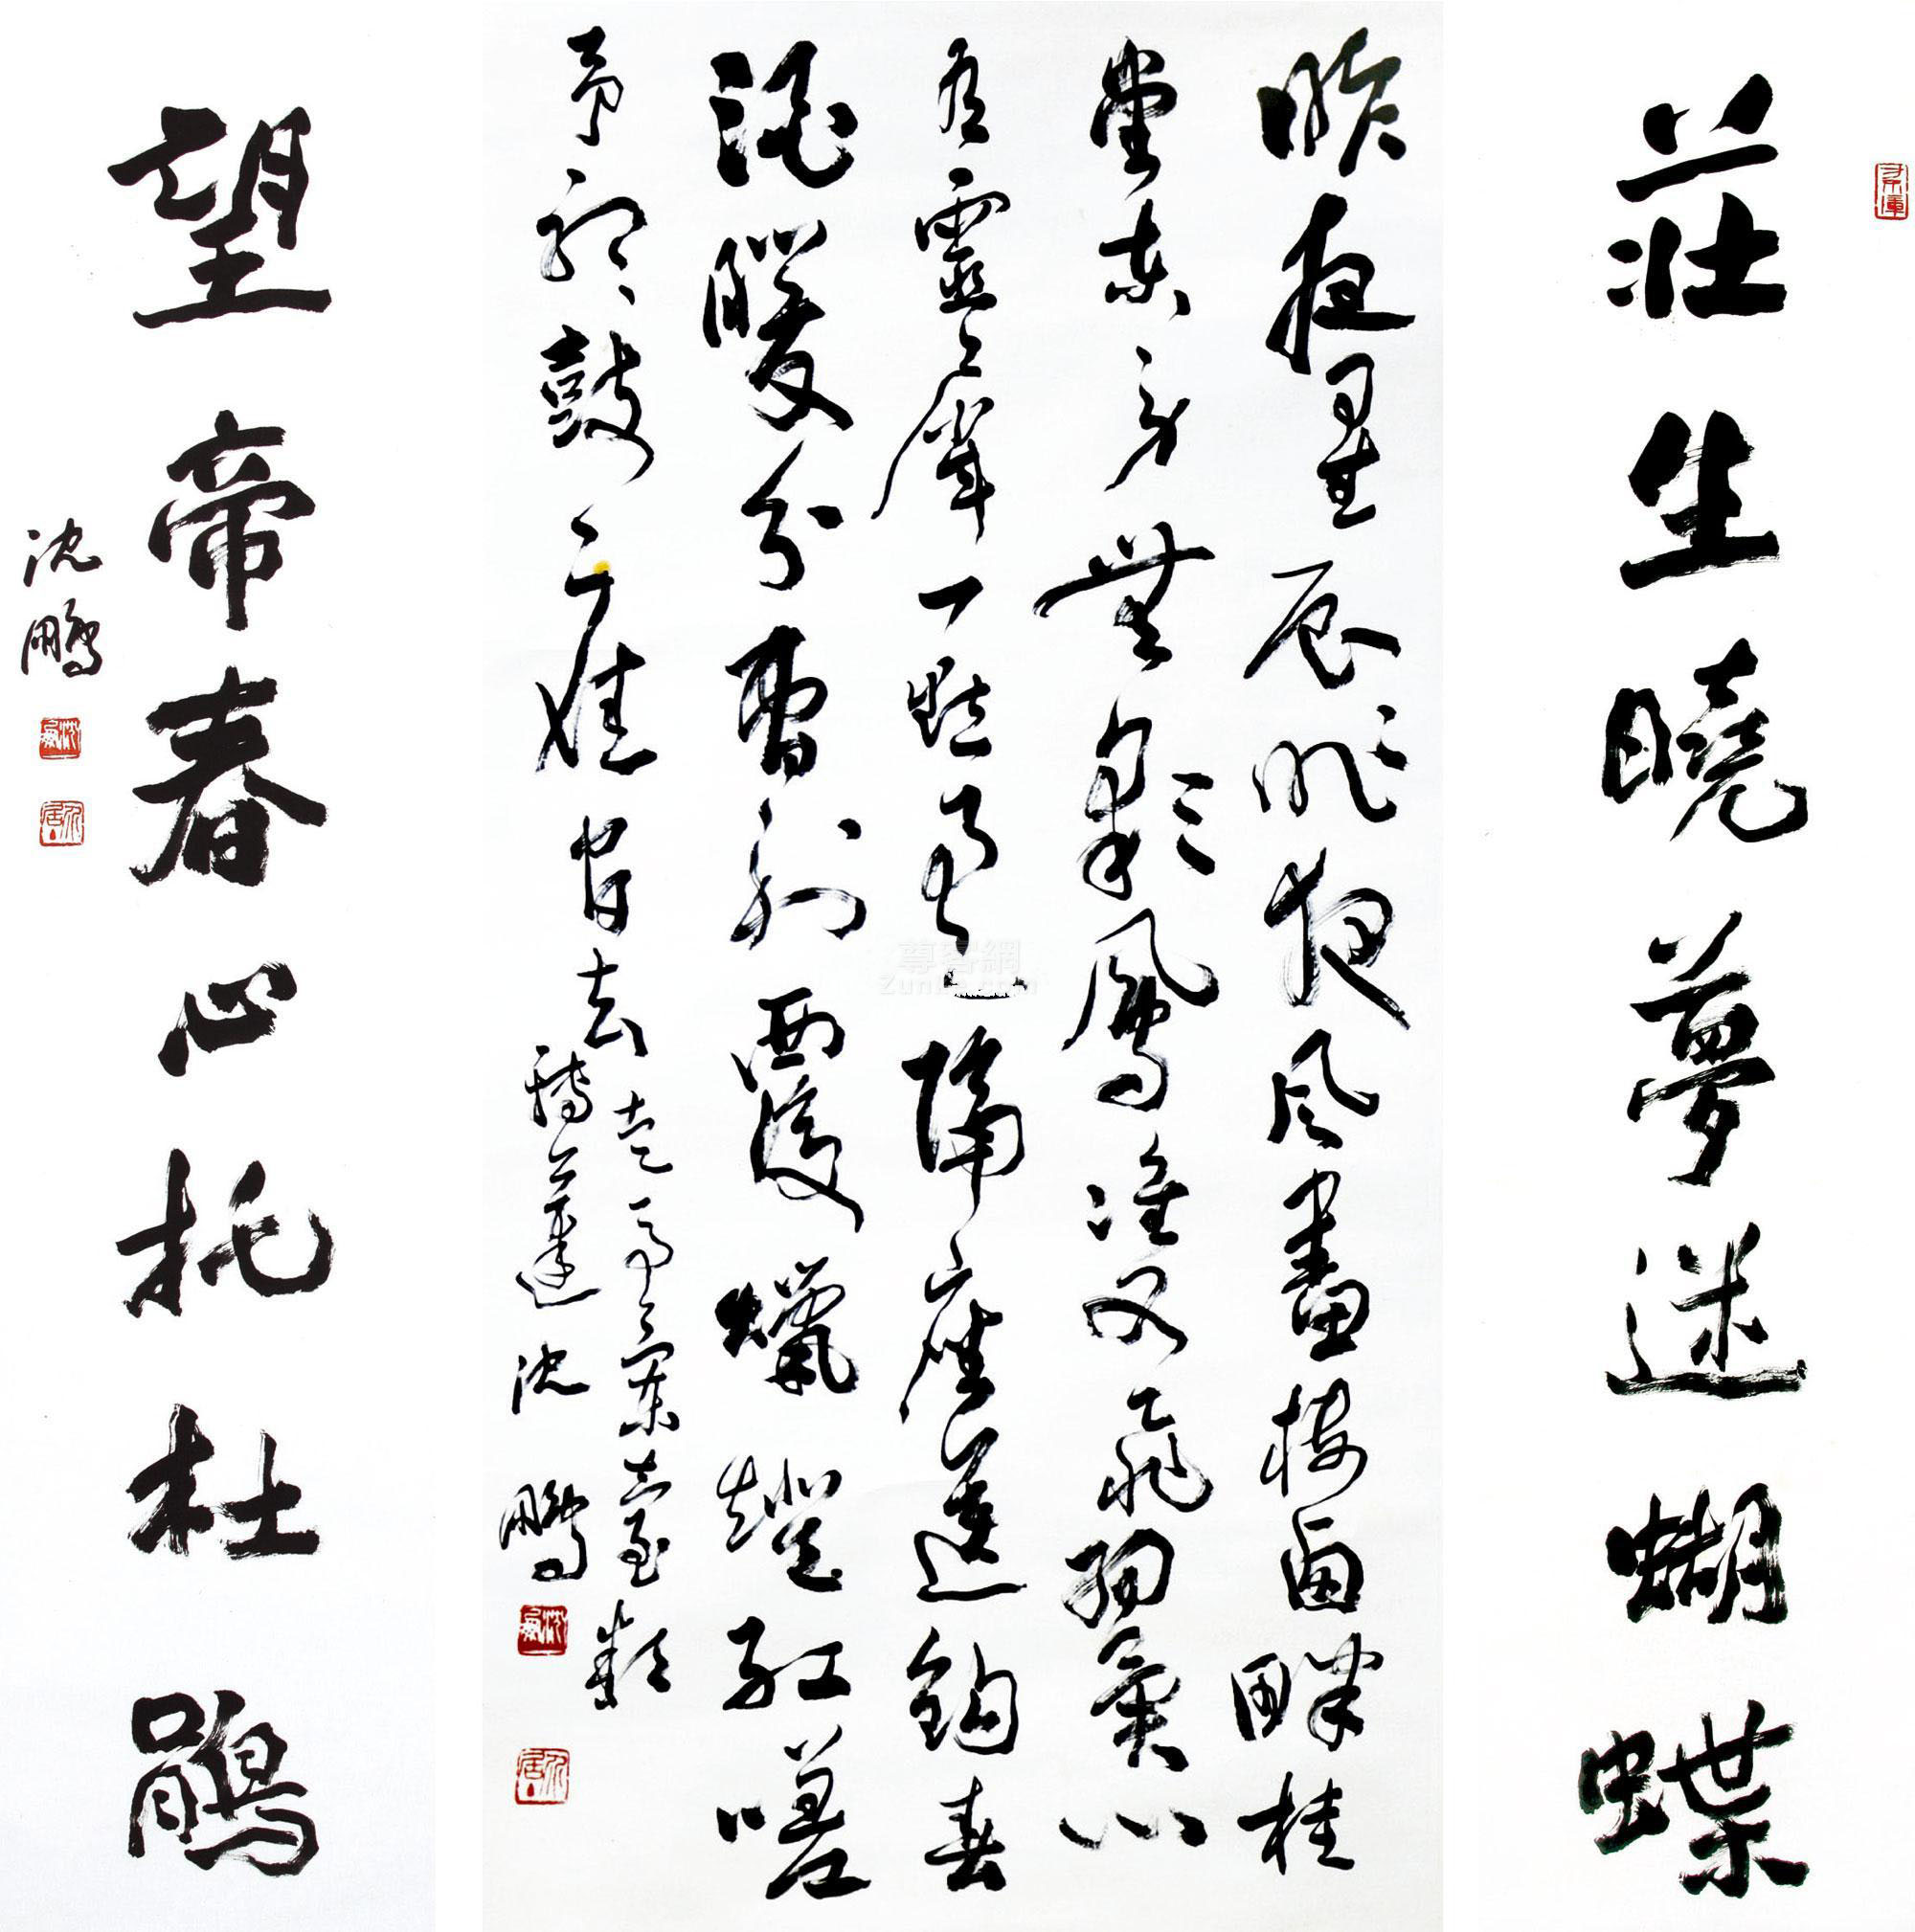 莊生曉夢迷蝴蝶
昨夜星辰昨夜風畫樓西畔桂
堂東身無彩鳳雙飛翼心
有靈犀一點通隔座送鉤春
酒暖分曹射覆蠟燈紅嗟
予聽鼓應官去走馬蘭臺類
轉蓬 沈鵬
望帝春心托杜鵑
沈鵬
尊客網